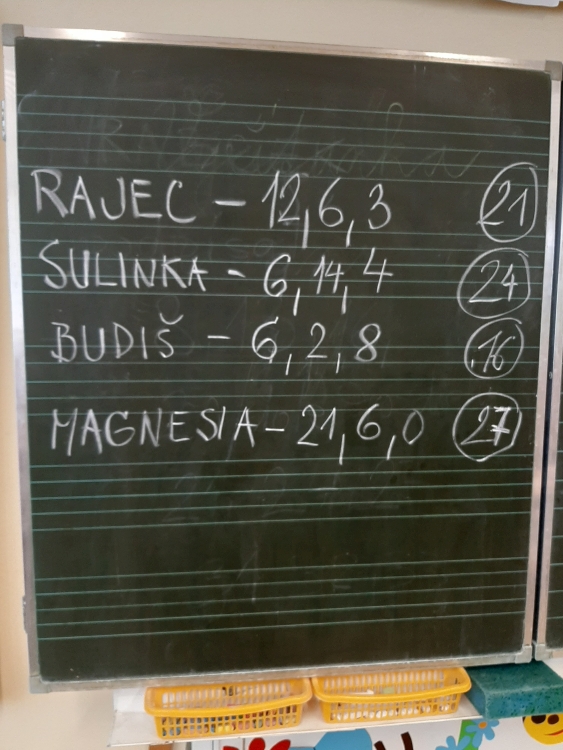 RAJEC - 12, 6, 3 21
SULINKA - 6, 14, 4 24
BUDIŠ - 6, 2, 8 16
MAGNESIA - 21, 6, 0 27